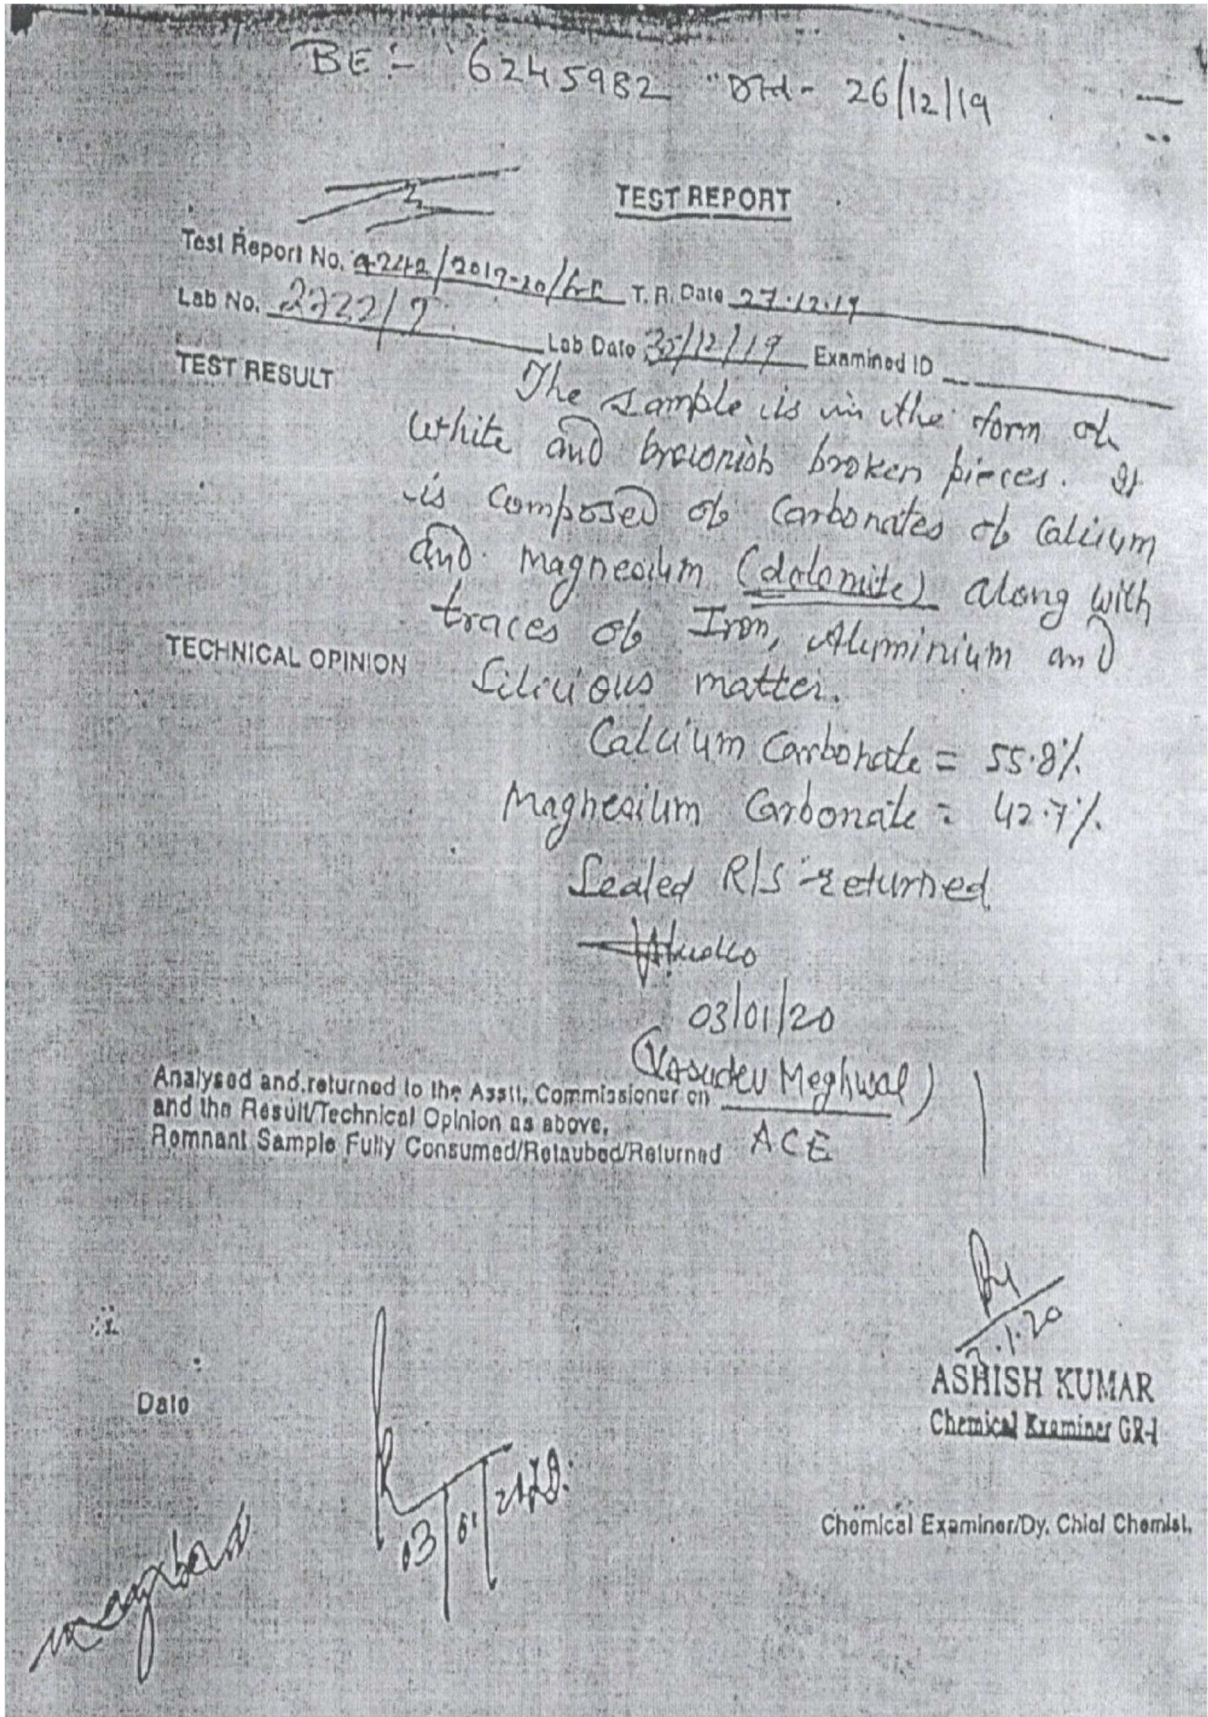 BE :- 6245982 Dtd- 26/12/19
TEST REPORT
Test Report No. 4242/2019-20/ T. R. Date 27.12.19
Lab No. 2722/ Lab Date 30/12/19 Examined ID
TEST RESULT
The sample is in the form of
white and brownish broken pieces. It
is composed of Carbonates of Calcium
and magnesium (dolomite) along with
traces of Iron, Aluminium and
TECHNICAL OPINION
Silicious matter.
Calcium Carbonate = 55.8%.
Magnesium Carbonate = 42.7%.
Sealed R/S returned.
03/01/20
(Vasudev Meghwal)
Analysed and returned to the Asstt. Commissioner on
and the Result/Technical Opinion as above.
ACE
Remnant Sample Fully Consumed/Retaubed/Returned
.1.20
ASHISH KUMAR
Chemical Examiner GR-I
Date
03/01/2020.
Chemical Examiner/Dy. Chief Chemist.